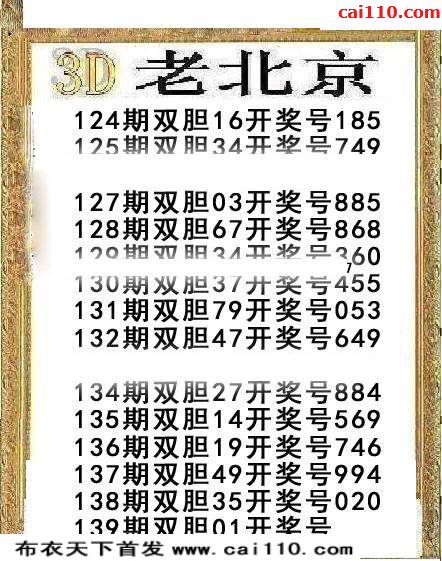 cai110.com
3D 老北京
124期双胆16开奖号185
125期双胆34开奖号749
127期双胆03开奖号885
128期双胆67开奖号868
129期双胆34开奖号360
130期双胆37开奖号455
131期双胆79开奖号053
132期双胆47开奖号649
134期双胆27开奖号884
135期双胆14开奖号569
136期双胆19开奖号746
137期双胆49开奖号994
138期双胆35开奖号020
139期双胆01开奖号
布衣天下首发 www.cai110.com